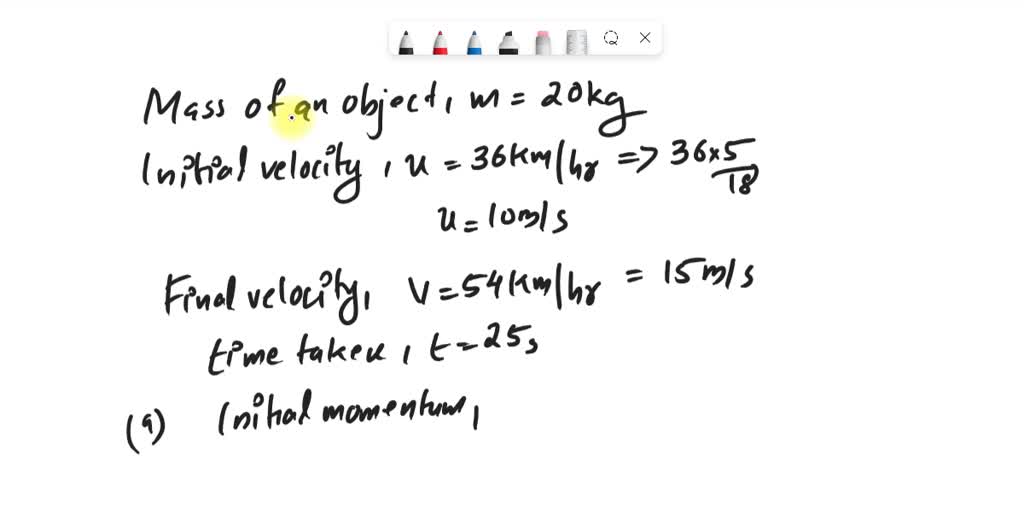 Mass of an object, m = 20kg
Initial velocity, u = 36km/hr => 36×5/18
u = 10m/s
Final velocity, v = 54km/hr = 15m/s
time taken, t = 25s
(a) Initial momentum,